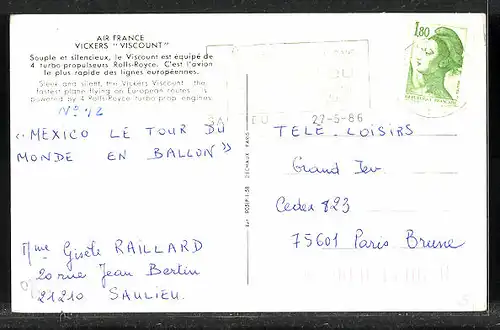 AIR FRANCE
VICKERS "VISCOUNT"
Souple et silencieux, le Viscount est équipé de
4 turbo propulseurs Rolls-Royce. C'est l'avion
le plus rapide des lignes européennes.
Sleek and silent, the Vickers Viscount the
fastest plane flying on European routes is
powered by 4 Rolls-Royce turbo prop. engines.
N° 12
"MEXICO LE TOUR DU
MONDE EN BALLON"
Mme Gisèle RAILLARD
20 rue Jean Bertin
21210 SAULIEU
DECHAUX PARIS
1.80
27-5-86
TELE-LOISIRS
Grand Jeu
Cedex 823
75601 Paris Brune